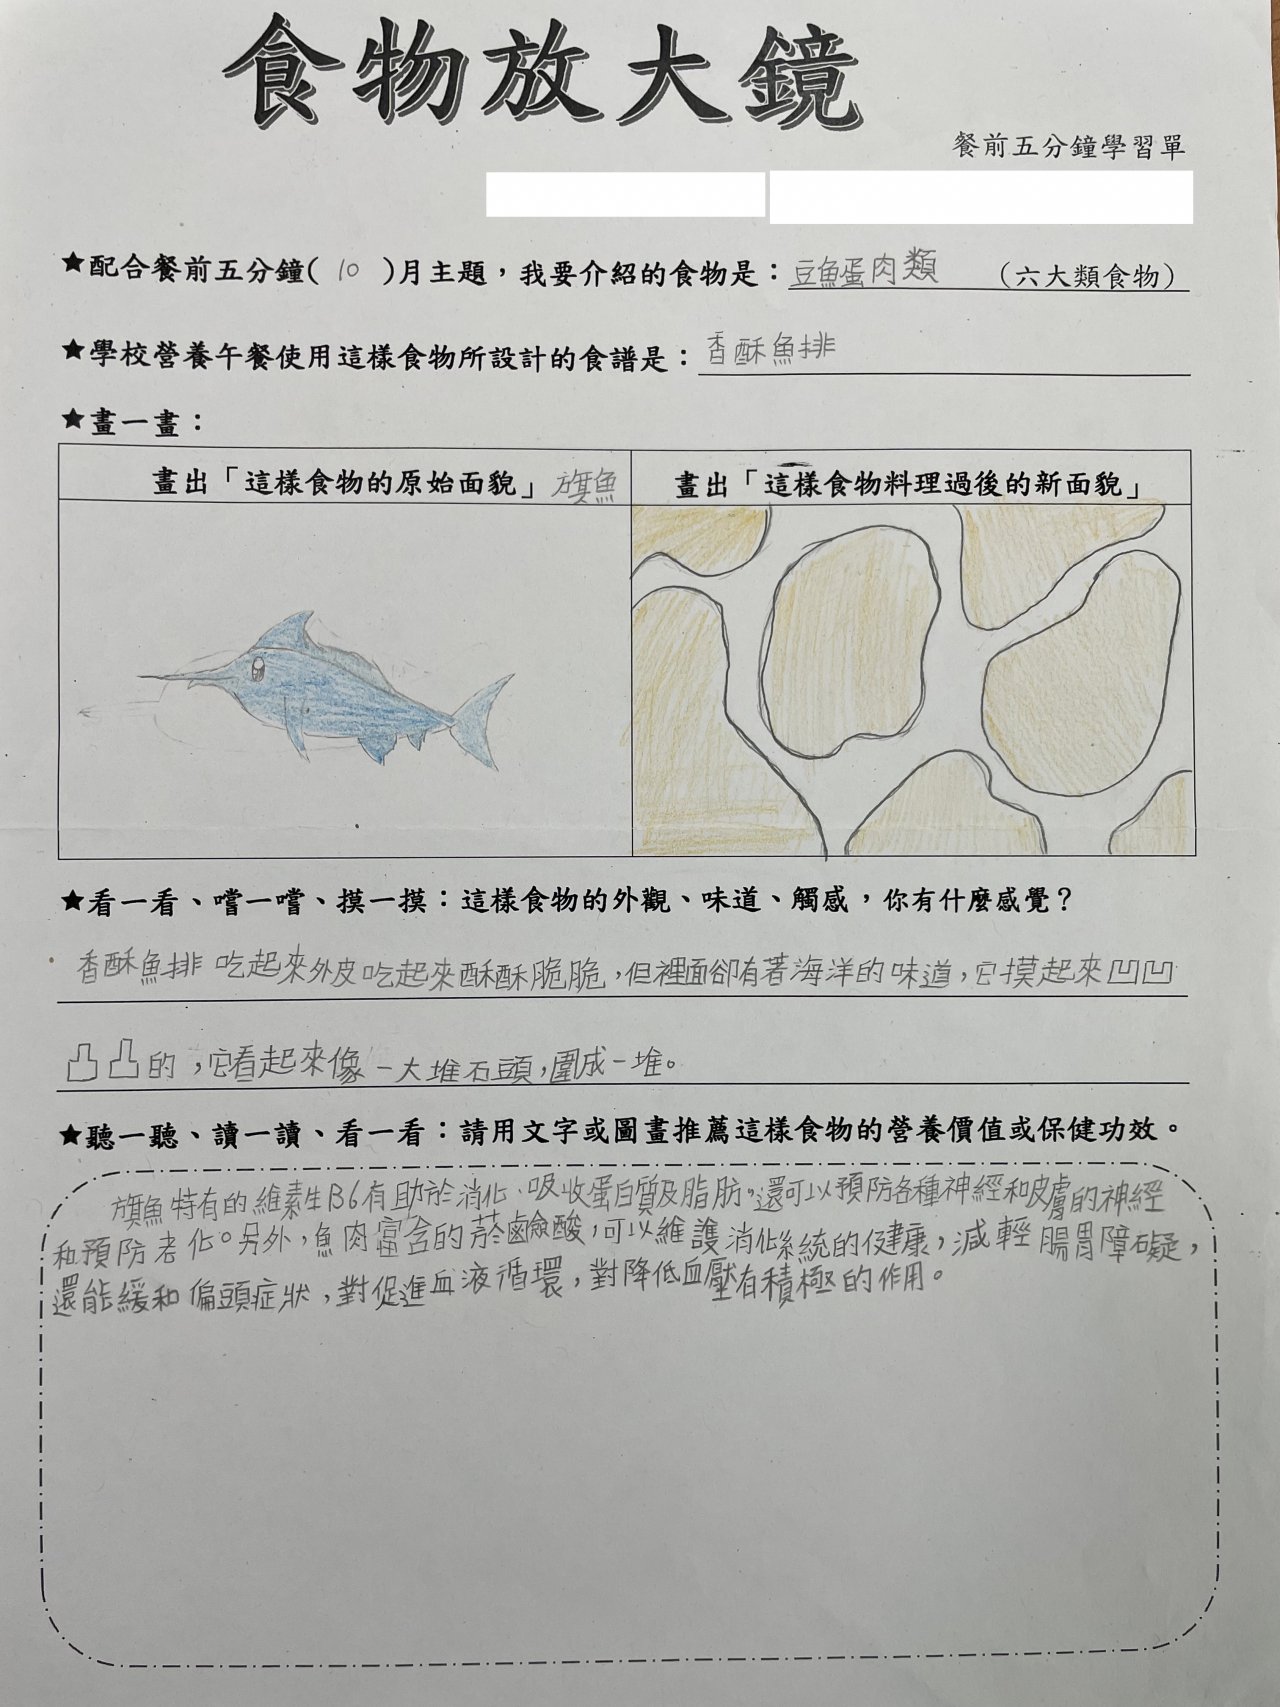 食物放大鏡
餐前五分鐘學習單
★配合餐前五分鐘( 10 )月主題，我要介紹的食物是：豆魚蛋肉類 （六大類食物）
★學校營養午餐使用這樣食物所設計的食譜是：香酥魚排
★畫一畫：
畫出「這樣食物的原始面貌」旗魚
畫出「這樣食物料理過後的新面貌」
★看一看、嚐一嚐、摸一摸：這樣食物的外觀、味道、觸感，你有什麼感覺？
香酥魚排吃起來外皮吃起來酥酥脆脆，但裡面卻有著海洋的味道，它摸起來凹凹
凸凸的，它看起來像一大堆石頭，圍成一堆。
★聽一聽、讀一讀、看一看：請用文字或圖畫推薦這樣食物的營養價值或保健功效。
旗魚特有的維素生B6有助於消化、吸收蛋白質及脂肪，還可以預防各種神經和皮膚的神經
和預防老化。另外，魚肉富含的菸鹼酸，可以維護消化系統的健康，減輕腸胃障礙，
還能緩和偏頭症狀，對促進血液循環，對降低血壓有積極的作用。